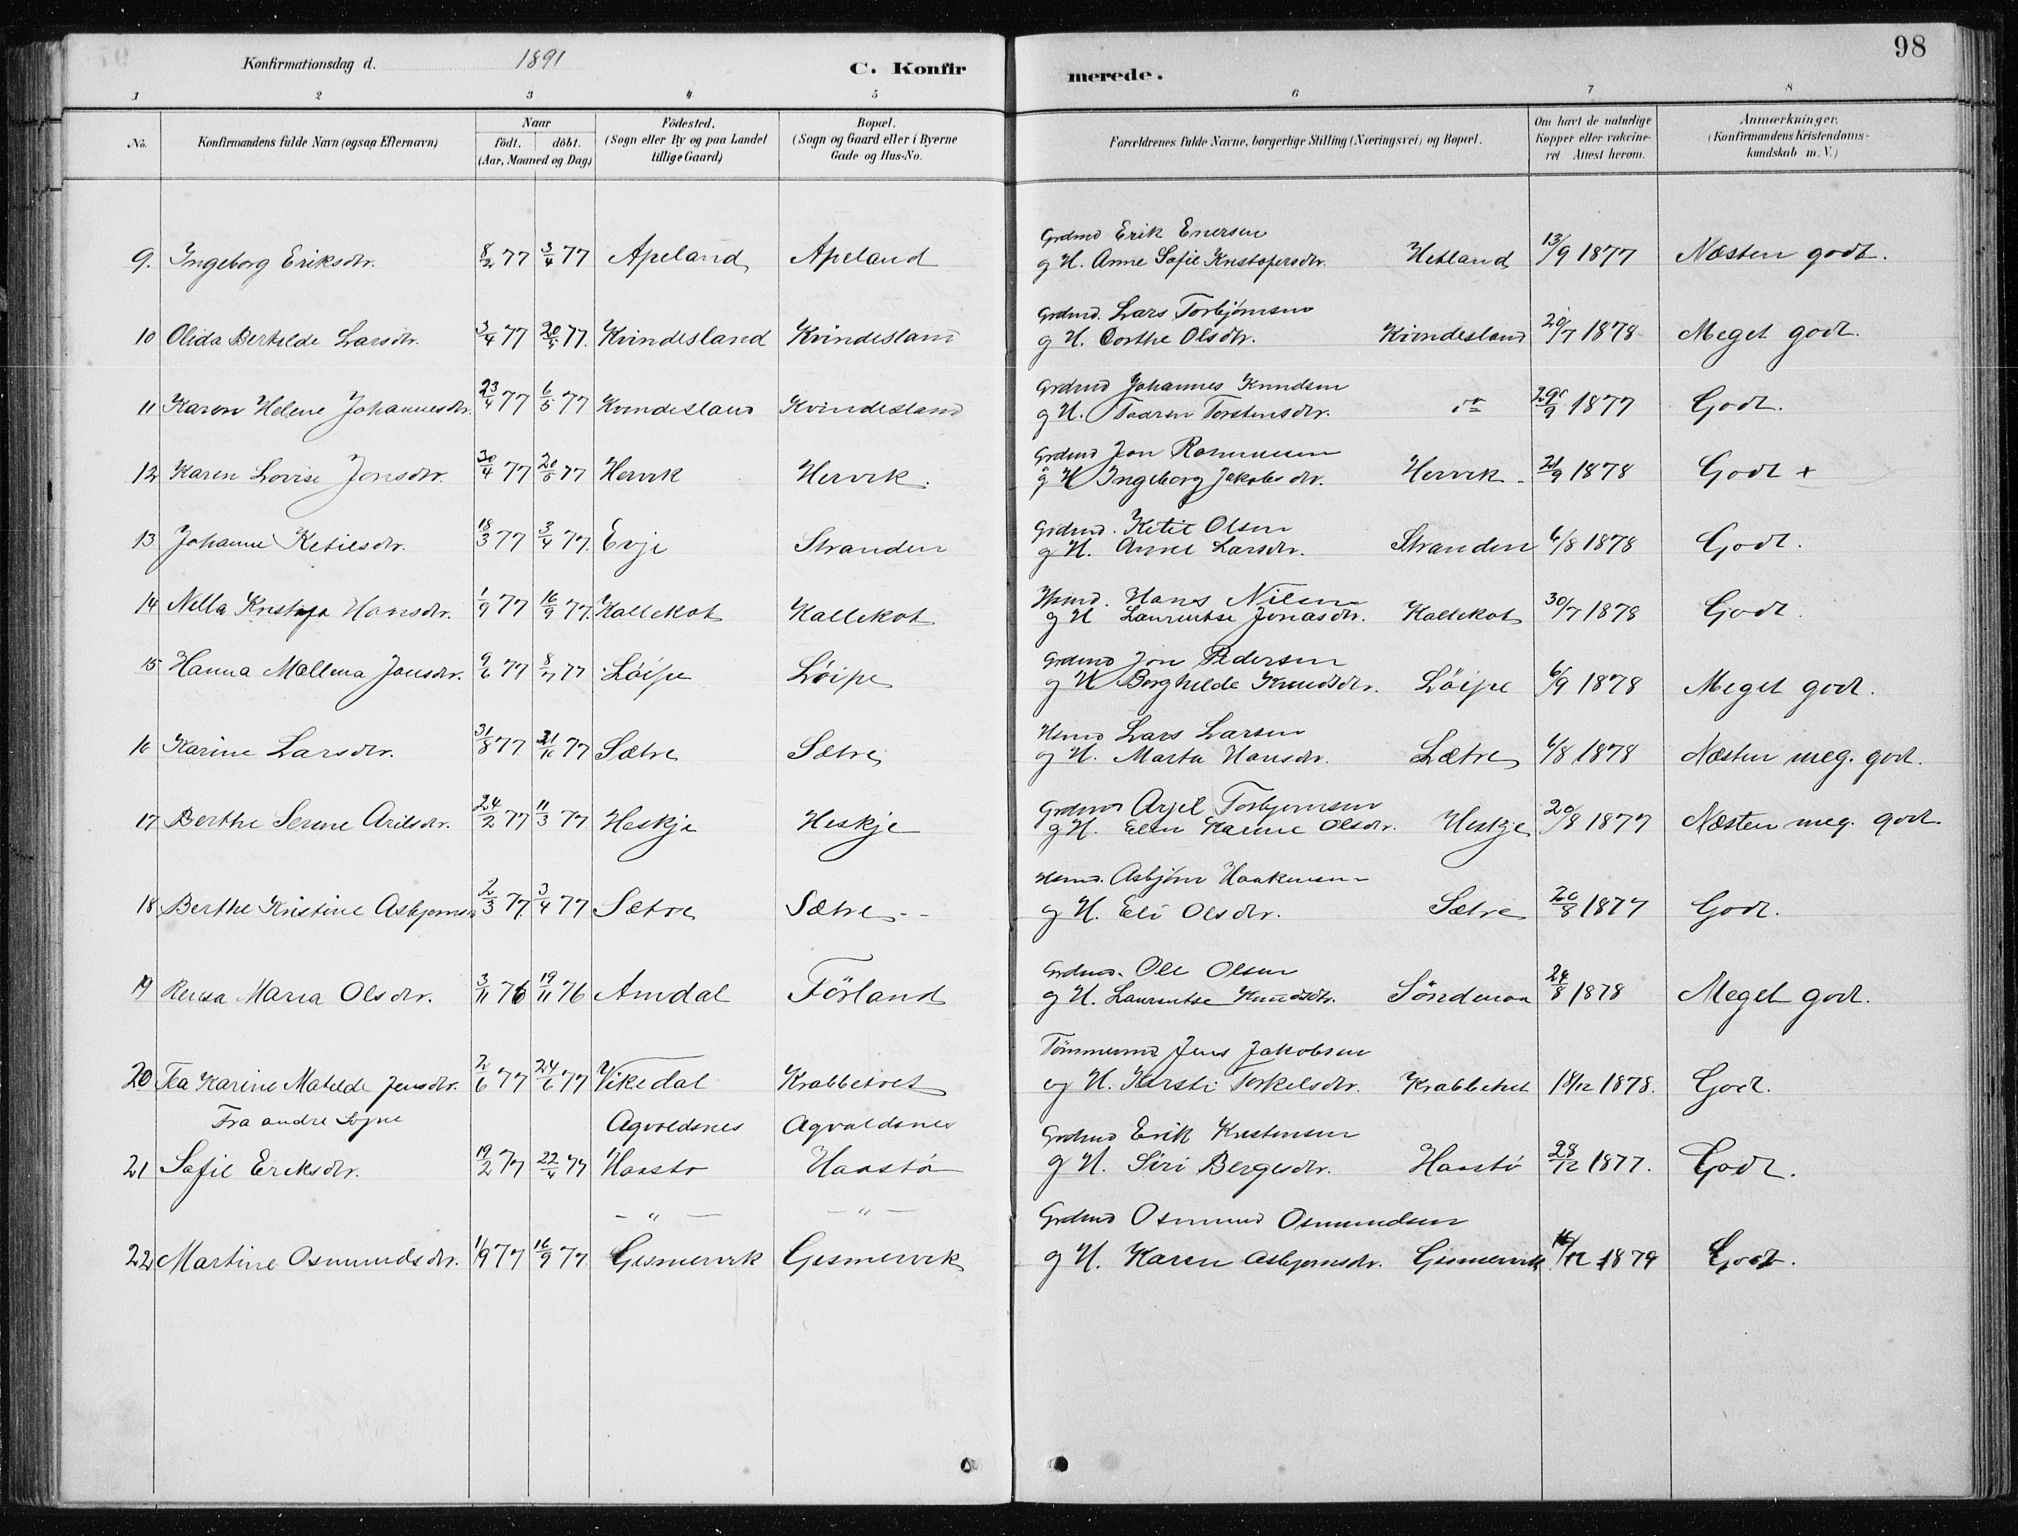 98
Konfirmationsdag d. 1891 C. Konfir merede.
1 2 3 4 5 6 7 8
No. Konfirmandens fulde Navn (ogsaa Efternavn) Naar født. døbt. (Aar, Maaned og Dag) Födested. (Sogn eller By og paa Landet tillige Gaard) Bopæl. (Sogn og Gaard eller i Byerne Gade og Hus-No. Forældrenes fulde Navne, borgerlige Stilling (Næringsvei) og Bopæl. Om havt de naturlige Kopper eller vakcineret Attest herom. Anmærkninger. (Konfirmandens Kristendomskundskab m. V.)
Grdmd Erik Enersen
9. Ingeborg Eriksdtr. 8/2 77 3/4 77 Apeland Apeland g H. Anne Sofie Kristofersdtr. Hetland 13/9 1877 Næsten godt.
Grdmd. Lars Torbjørnsen
10 Olida Bertilde Larsdtr. 3/4 77 20/4 77. Kvindesland Kvindesland g H. Dorthe Olsdtr. Kvindesland 20/7 1878 Meget godt.
Grdmd Johannes Knudsen
11 Karen Helene Johannesdtr. 23/4 77 6/5 77 Kvindesland Kvindesland g H. Taaren Torstensdtr. do 1877 Godt.
Grdmd Jon Rasmussen
12 Karen Lovise Jonsdtr. 30/4 77 20/5 77 Hervik Hervik. g H Ingeborg Jakobsdtr. Hervik. 21/9 1878 Godt +
Grdmd. Ketil Olsen
13 Johanne Ketilsdtr. 18/3 77 3/4 77. Evje Stranden g H. Anne Larsdtr. Stranden 6/8 1878 Godt.
Hsmd. Hans Nilsen
14 Nella Hansdtr. 1/9 77 16/9 77. Kallekot Kallekot g H Laurentse Jonasdtr. Kallekot 30/7 1878 Godt.
Grdmd Jon Pedersen
15 Hanna Mallena Jonsdtr. 9/6 77 8/7 77 Løipe Løipe g H Borghilde Knudsdtr. Løipe 6/9 1878 Meget godt.
Hsmd Lars Larsen
16 Karine Larsdtr. 31/8 77 21/10 77 Sætre Sætre g H. Marta Hansdtr. Sætre 6/8 1878 Næsten meg. godt.
Grdmd Arjel Torbjørnsen
17 Berthe Serine Arilsdtr. 24/2 77 11/3 77 Heskje Heskje g H. Elen Karine Olsdtr. Heskje 20/8 1877 Næsten meg. godt.
Hsmd. Asbjørn Haakensen
18 Berthe Kristine Asbjørnsdr 2/3 77. 3/4 77 Sætre Sætre g H. Eli Olsdtr. Sætre 20/8 1877 Godt.
Grdmd. Ole Olsen
19 Maria Olsdtr. 3/11 76 19/11 76 Amdal Førland g H. Laurentse Knudsdtr. Søndenaa 24/8 1878 Meget godt.
Tømmermd Jens Jakobsen
20 Tea Karine Matilde Jensdtr. 2/6 77 24/6 77 Vikedal Krabbetvet og H. Kirsti Torkelsdtr. Krabbetvet 18/12 1878. Godt.
Fra andre Sogne Agvoldsnes Agvaldsnes Grdmd Erik Kristensen
21 Sofie Eriksdtr. 19/2 77 22/4 77 Haasto Haastø g H. Siri Bergesdtr. Haastø 28/12 1877. Godt.
— " — — " — Grdmd Osmund Osmundsen
22 Martine Osmundsdtr. 1/9 77 16/9 77. Gismervik Gismervik g H. Karen Asbjørnsdtr. Gismervik 16/12 1879 Godt.